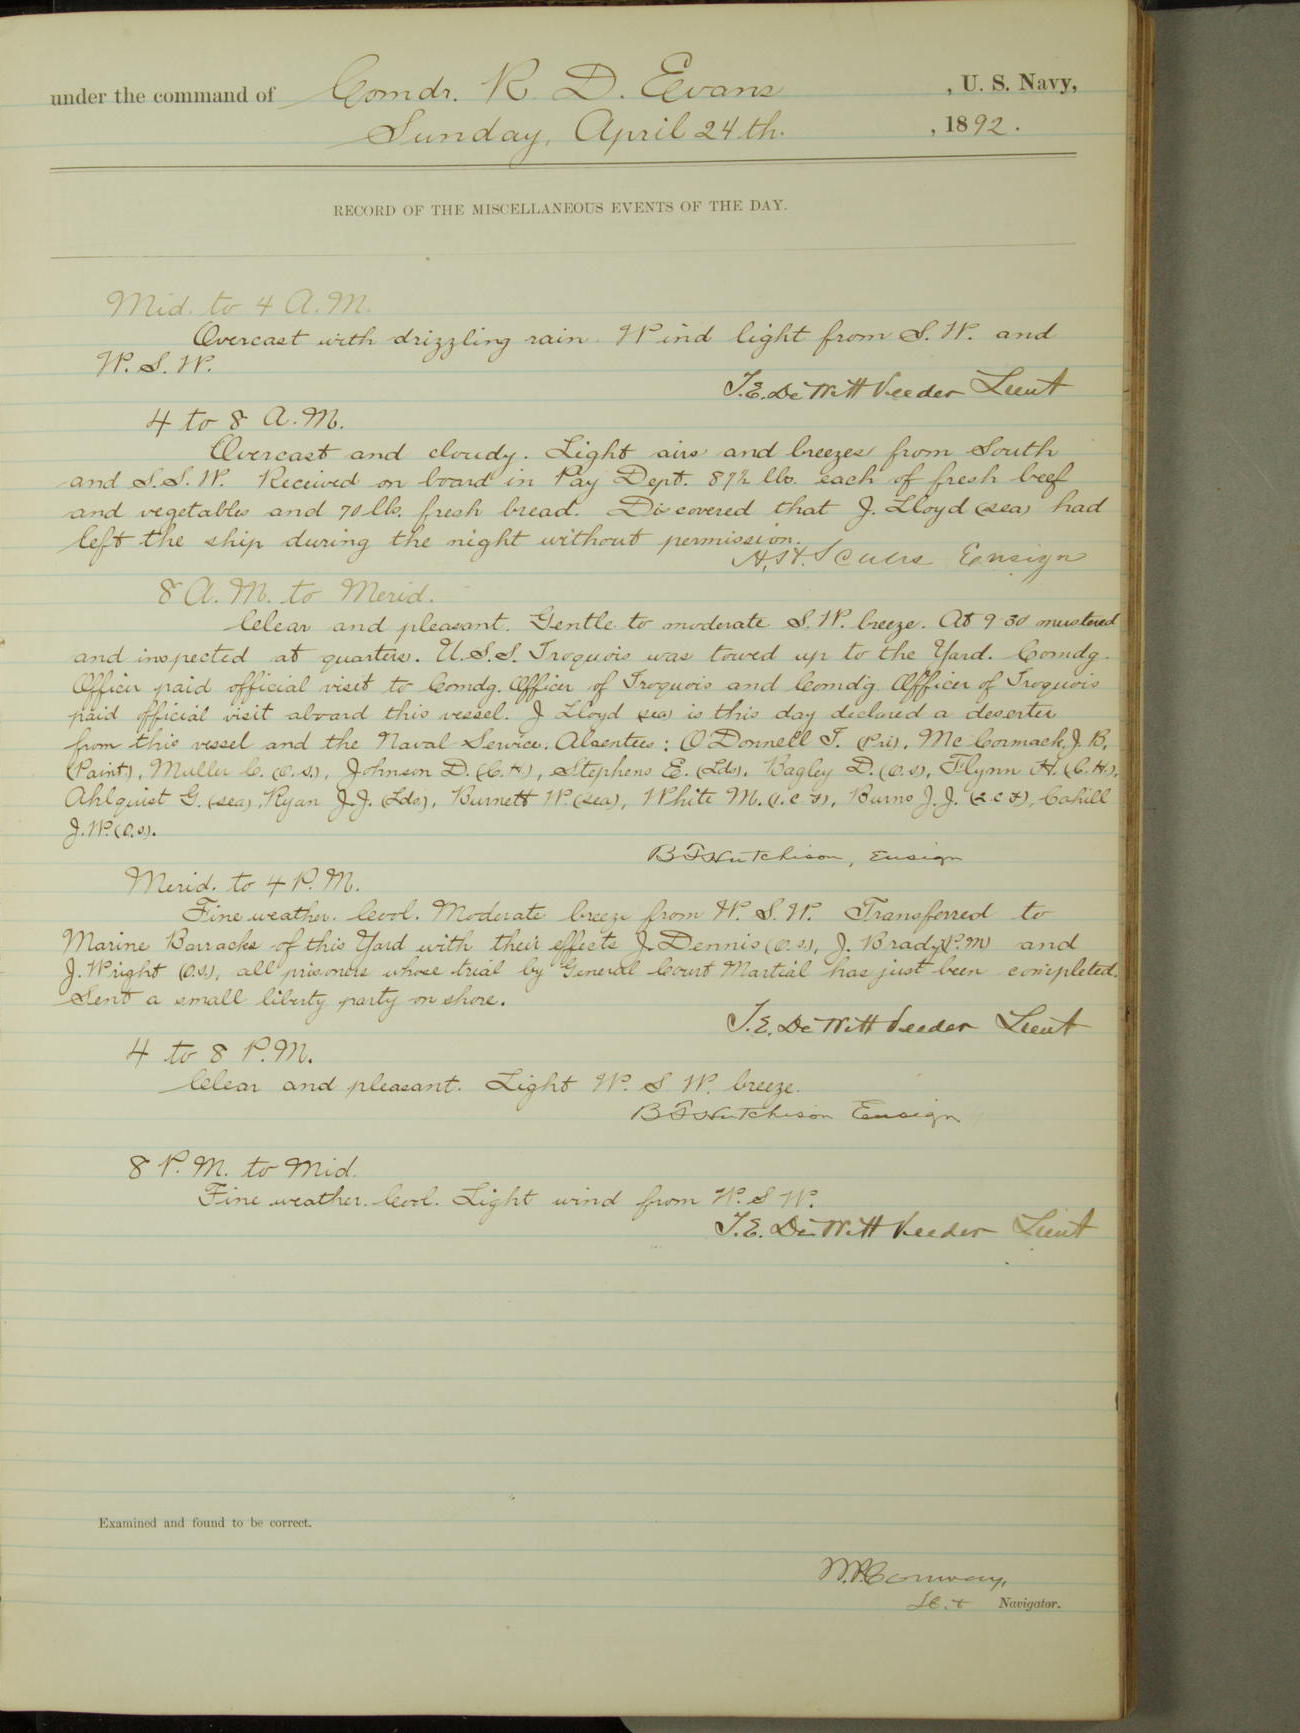 under the command of Comdr. R. D. Evans, U. S. Navy,
Sunday, April 24th., 1892.
RECORD OF THE MISCELLANEOUS EVENTS OF THE DAY.
Mid. to 4 A.M.
Overcast with drizzling rain. Wind light from S.W. and
W.S.W.
T.E. DeWitt Veeder Lieut
4 to 8 A.M.
Overcast and cloudy. Light airs and breezes from South
and S.S.W. Received on board in Pay Dept. 87½ lbs. each of fresh beef
and vegetables and 70 lbs. fresh bread. Discovered that J. Lloyd (sea) had
left the ship during the night without permission.
Ensign
8 A.M. to Merid.
Clear and pleasant. Gentle to moderate S.W. breeze. At 9 30 mustered
and inspected at quarters. U.S.S. Iroquois was towed up to the Yard. Comdg.
Officer paid official visit to Comdg. Officer of Iroquois and Comdg Officer of Iroquois
paid official visit aboard this vessel. J Lloyd (sea) is this day declared a deserter
from this vessel and the Naval Service. Absentees: O'Donnell T. (Pri), McCormack, J.B,
(Paint), Muller C. (O.S.), Johnson D. (C.H.), Stephens E. (Lds), Bagley D. (O.S), Flynn H. (C.H.),
Ahlquist G. (sea), Ryan J.J. (Lds), Burnett W. (sea), White M. (1.C.F), Burns J.J. (2.C.F), Cahill
J.W. (O.S).
B F Hutchison, Ensign
Merid. to 4 P.M.
Fine weather. Cool. Moderate breeze from W.S.W. Transferred to
Marine Barracks of this Yard with their effects J. Dennis (O.S.), J. Brady (P.M) and
J. Wright (O.S.), all prisoners whose trial by General Court Martial has just been completed.
Sent a small liberty party on shore.
T.E. DeWitt Veeder Lieut
4 to 8 P.M.
Clear and pleasant. Light W. S W. breeze.
B F Hutchison Ensign
8 P.M. to Mid.
Fine weather. Cool. Light wind from W. S W.
T.E. DeWitt Veeder Lieut
Examined and found to be correct.
W.P. Conway,
Navigator.